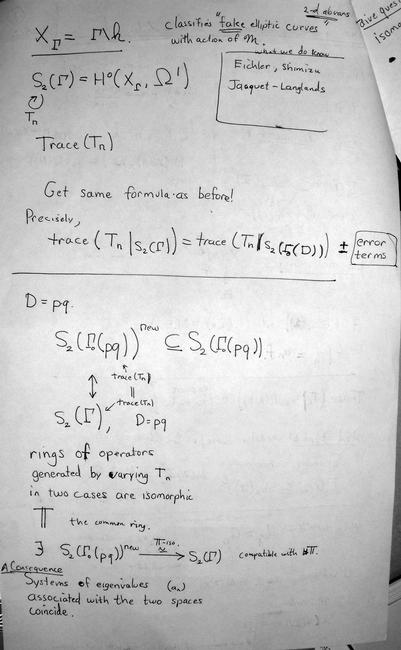 X_Γ = Γ\h.
classifies "fake elliptic curves"
2-d abvars
with action of M.
what we do know
Eichler, Shimizu
Jacquet-Langlands
S₂(Γ) = H⁰(X_Γ, Ω¹)
T_n
Trace(T_n)
Get same formula as before!
Precisely,
trace (T_n | S₂(Γ)) = trace (T_n | S₂(Γ₀(D))) ± error terms
D = pq.
S₂(Γ₀(pq))^new ⊆ S₂(Γ₀(pq))
trace(T_n)
||
trace(T_n)
S₂(Γ), D = pq
rings of operators
generated by varying T_n
in two cases are isomorphic
𝕋 the common ring.
∃ S₂(Γ₀(pq))^new 𝕋-iso. ~→ S₂(Γ) compatible with 𝕋.
A Consequence
Systems of eigenvalues (a_n)
associated with the two spaces
coincide.
Give
isom